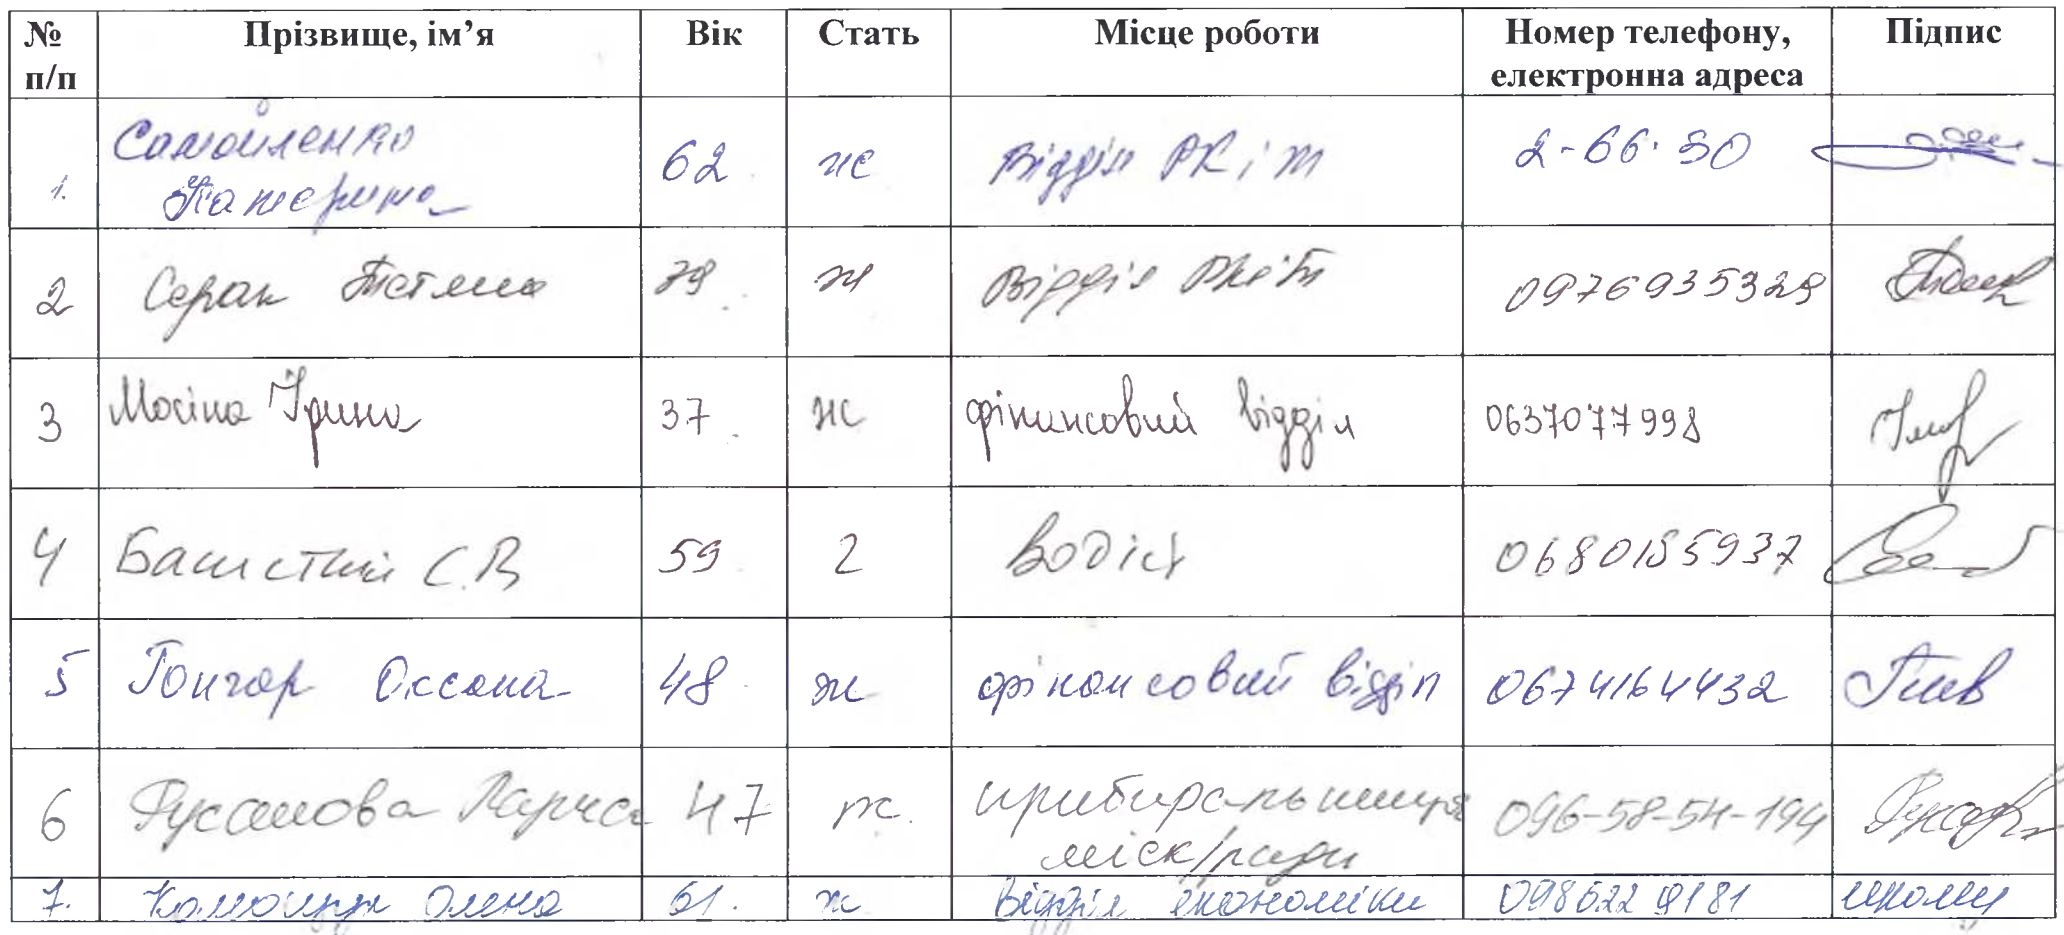 № п/п Прізвище, ім’я Вік Стать Місце роботи Номер телефону, електронна адреса Підпис
1. Самойленко Катерина 62 ж Відділ РК і Т 2-66-50
2 Серак Тетяна ж Відділ 0976935329
3 Мосіна Ірина 37 ж фінансовий відділ 0637077998
4 Башистий С.В 59 2 Водій 0680155937
5 Гончар Оксана 48 ж фінансовий відділ 0674164432
6 Русанова Лариса 47 ж. прибиральниця міск/ради 096-58-54-194
7. Олена 61. ж Відділ економіки 098622 9181